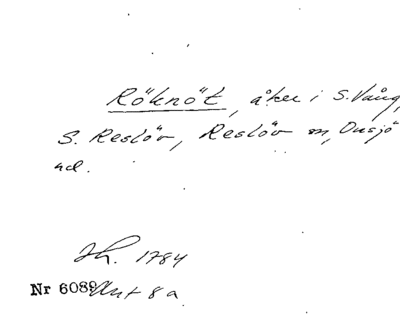 Röknöt, åker i S. Vång,
S. Reslöv, Reslöv sn, Onsjö
hd.
Lh. 1784
Nr 6089 Akt 8 a